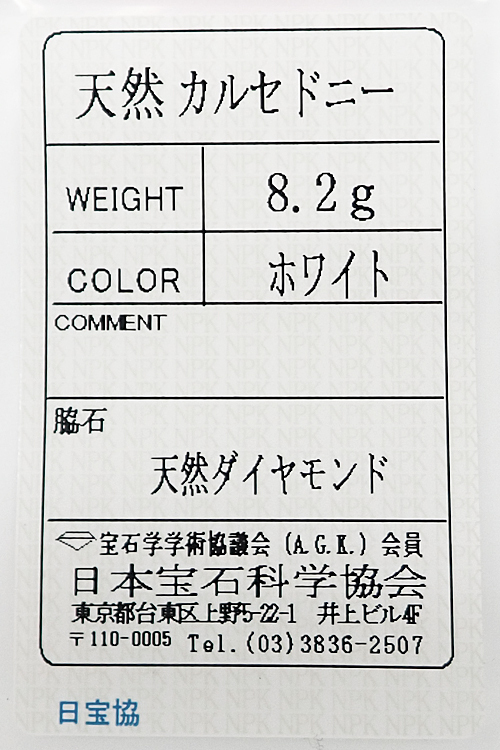 天然 カルセドニー
WEIGHT 8.2g
COLOR ホワイト
COMMENT
脇石
天然ダイヤモンド
宝石学学術協議会 (A.G.K.) 会員
日本宝石科学協会
東京都台東区上野5-22-1 井上ビル4F
〒110-0005 Tel.(03)3836-2507
日宝協